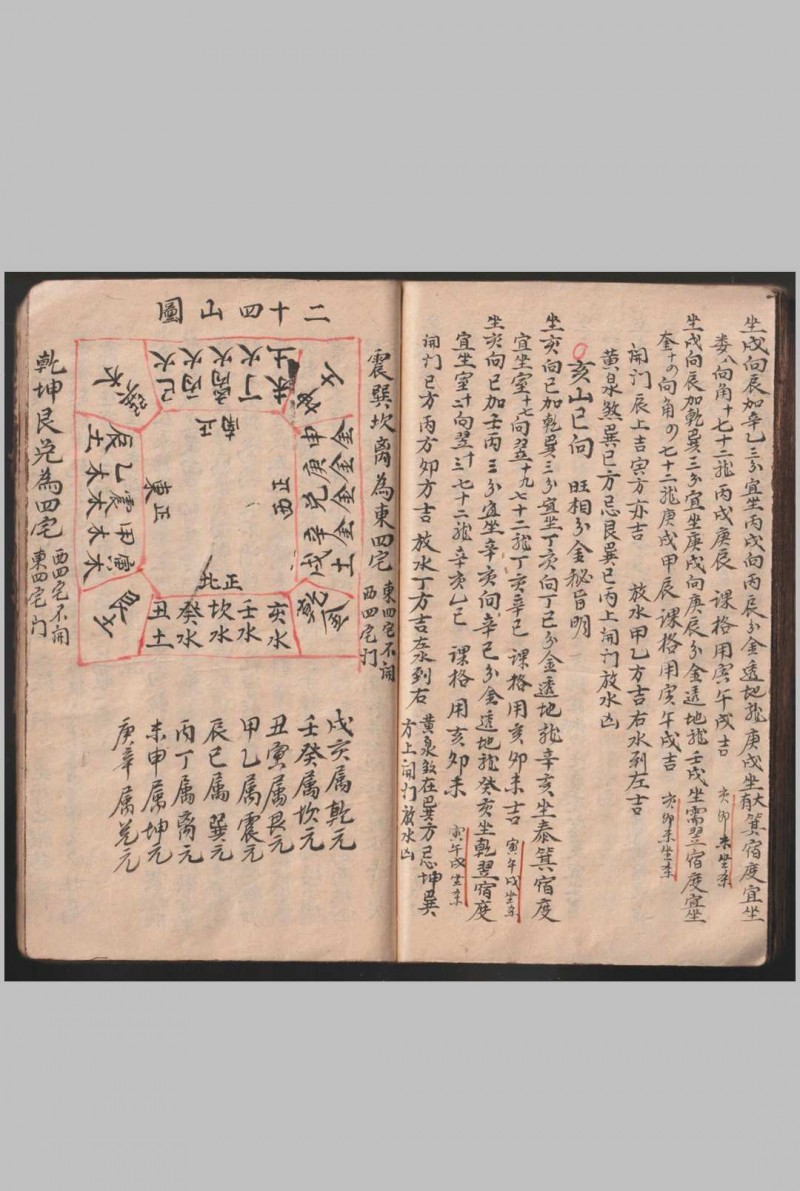 坐戌向辰加辛乙三分宜坐丙戌向丙辰分金透地龙庚戌坐大有箕宿度宜坐
娄八向角十七十二龙丙戌庚辰 课格用寅午戌吉 亥卯未坐杀
坐戌向辰加乾巽三分宜坐庚戌向庚辰分金透地龙壬戌坐需翌宿度宜坐
奎十の向角の七十二龙庚戌甲辰 课格用寅午戌吉 亥卯未坐杀
開门辰上吉寅方亦吉 放水甲乙方吉右水到左吉
黄泉煞巽巳方忌艮巽巳丙上開门放水凶
亥山巳向 旺相分金秘旨明
坐亥向巳加乾巽三分宜坐丁亥向丁巳分金透地龙辛亥坐泰箕宿度
宜坐室十七向翌十九七十二龙丁亥辛巳 课格用亥卯未吉 寅午戌坐杀
坐亥向巳加壬丙三分宜坐辛亥向辛巳分金透地龙癸亥坐乾翌宿度
宜坐室 向翌 七十二龙辛亥乙巳 课格用亥卯未 寅午戌坐杀
開门巳方丙方卯方吉 放水丁方吉左水到右 黄泉煞在巽方忌坤巽
方上開门放水凶
二十四山圖
震巽坎离為東四宅 東四宅不開
西四宅门
未土
丁火
离火
丙火
巳火
正南
申金
庚金
兑金
辛金
戌土
正西
辰土
乙木
震木
甲木
寅木
正東
正北
亥水
壬水
坎水
癸水
丑土
乾坤艮兑為四宅 西四宅不開
東四宅门
戌亥属乾元
壬癸属坎元
丑寅属艮元
甲乙属震元
辰巳属巽元
丙丁属离元
未申属坤元
庚辛属兑元